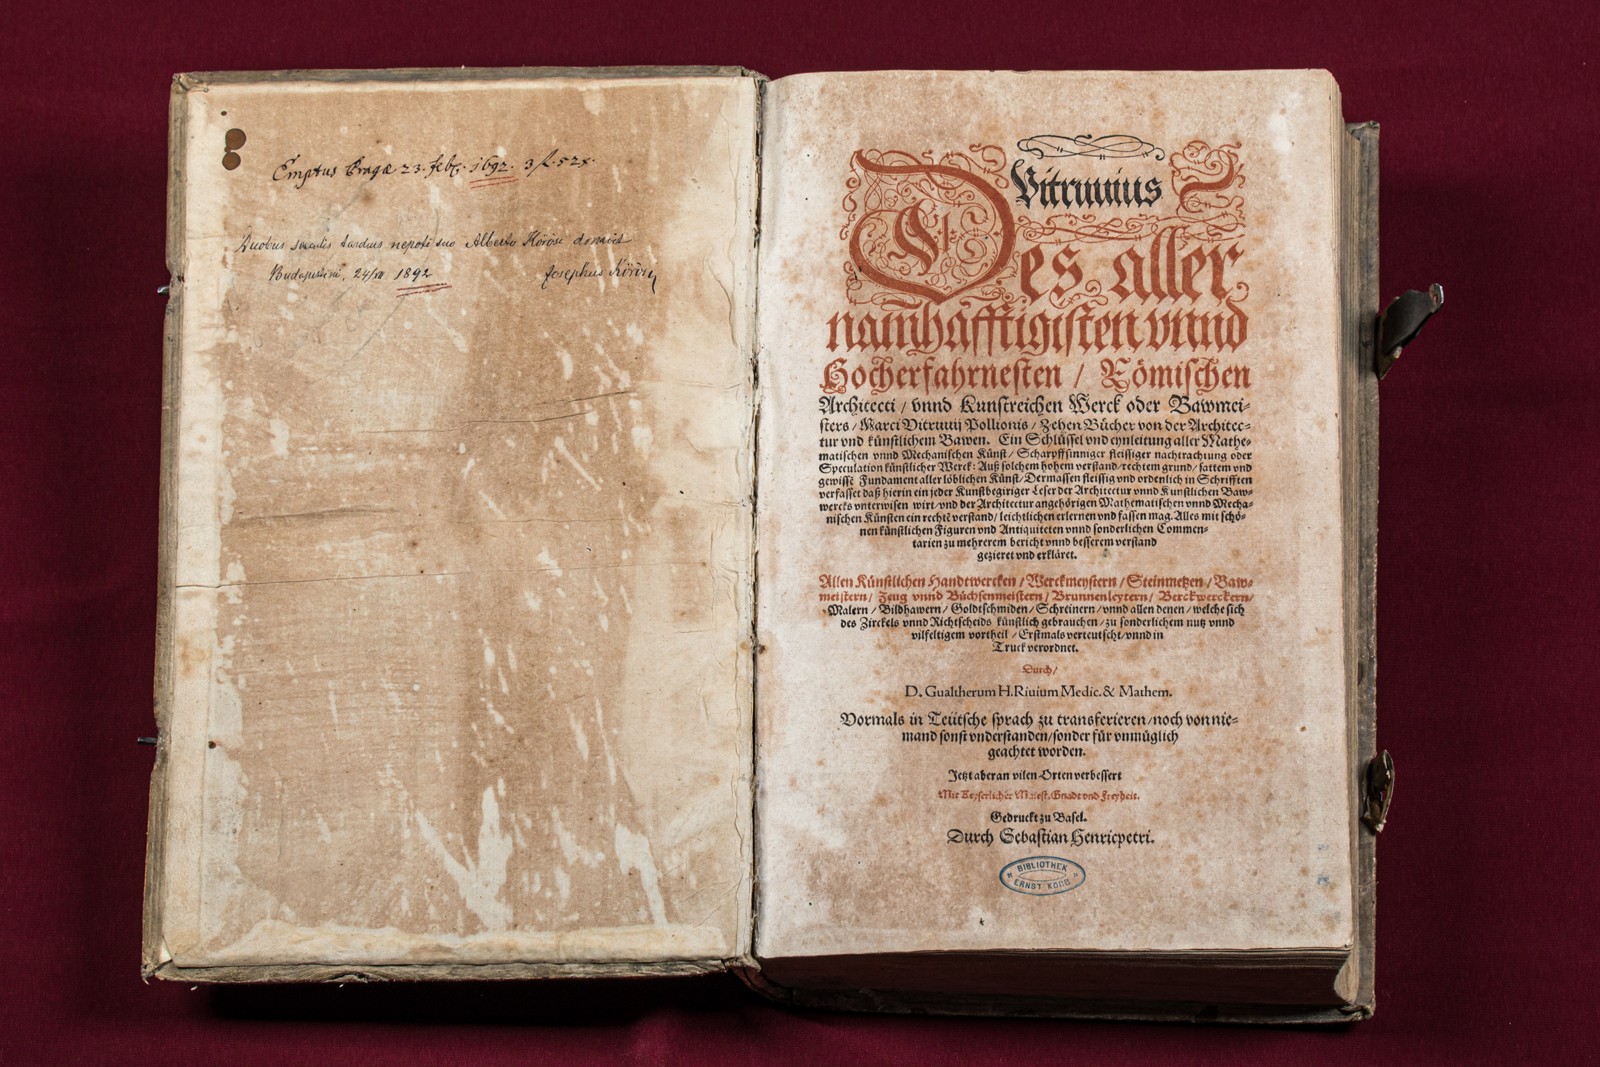 Emptus Pragæ 23. feb. 1692. 3 f. 52x.
Duobus saeculis tardius nepoti suo Alberto Kőrösi donavit
Budapestini, 24/III 1892 Josephus Kőrösi
Vitruuius
Des aller
namhafftigisten vnnd
Hocherfahrnesten / Römischen
Architecti / vnnd Kunstreichen Werck oder Bawmei-
sters / Marci Vitruuij Pollionis / Zehen Bücher von der Architec-
tur vnd künstlichem Bawen. Ein Schlüssel vnd eynleitung aller Mathe-
matischen vnnd Mechanischen Künst / Scharpffsinniger fleissiger nachtrachtung oder
Speculation künstlicher Werck: Auß solchem hohem verstand / rechtem grund / sattem vnd
gewisse Fundament aller löblichen Künst / Dermassen fleissig vnd ordenlich in Schrifften
verfasset daß hierin ein jeder Kunstbegiriger Leser der Architectur vnnd Kunstlichen Baw-
wercks vnterwisen wirt / vnd der Architectur angehörigen Mathematischen vnnd Mecha-
nischen Künsten ein rechtē verstand / leichtlichen erlernen vnd fassen mag. Alles mit schö-
nen künstlichen Figuren vnd Antiquiteten vnnd sonderlichen Commen-
tarien zu mehrerem bericht vnnd besserem verstand
gezieret vnd erkläret.
Allen Künstlichen Handtwercken / Werckmeystern / Steinmetzen / Baw-
meistern / Zeug vnnd Büchsenmeistern / Brunnenleytern / Berckwerckern /
Malern / Bildhawern / Goldtschmiden / Schreinern / vnnd allen denen / welche sich
des Zirckels vnnd Richtscheids künstlich gebrauchen / zu sonderlichem nutz vnnd
vilfeltigem vortheil / Erstmals verteutscht / vnnd in
Truck verordnet.
Durch /
D. Gualtherum H. Riuium Medic. & Mathem.
Vormals in Teütsche sprach zu transferieren / noch von nie-
mand sonst vnderstanden / sonder für vnmüglich
geachtet worden.
Jetzt aber an vilen Orten verbessert
Mit Keyserlicher Maiest. Gnadt vnd Freyheit.
Gedruckt zu Basel.
Durch Sebastian Henricpetri.
BIBLIOTHEK
ERNST KOOB